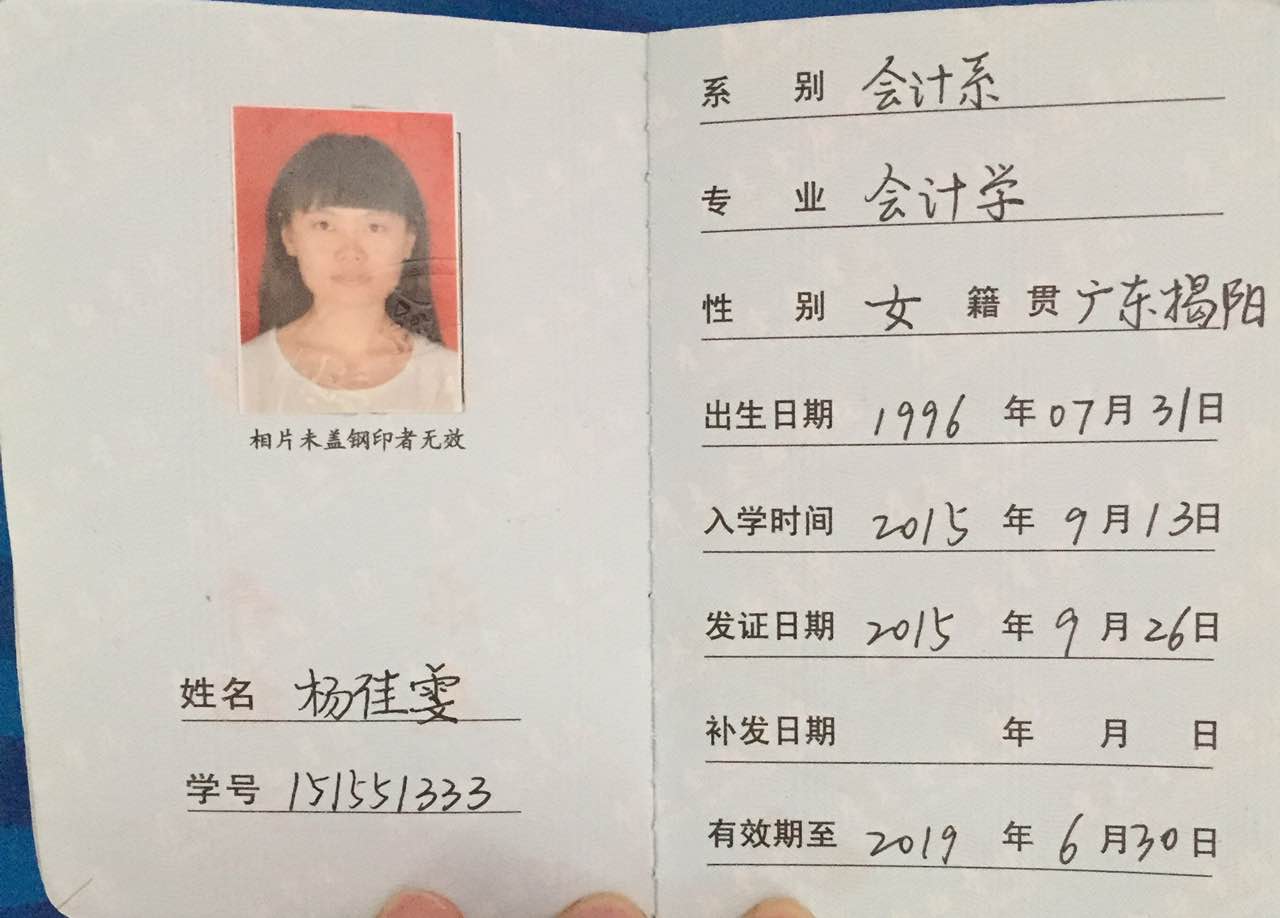 相片未盖钢印者无效
姓名 杨佳雯
学号 151551333
系别 会计系
专业 会计学
性别 女 籍贯 广东揭阳
出生日期 1996 年 07 月 31 日
入学时间 2015 年 9 月 13 日
发证日期 2015 年 9 月 26 日
补发日期 年 月 日
有效期至 2019 年 6 月 30 日